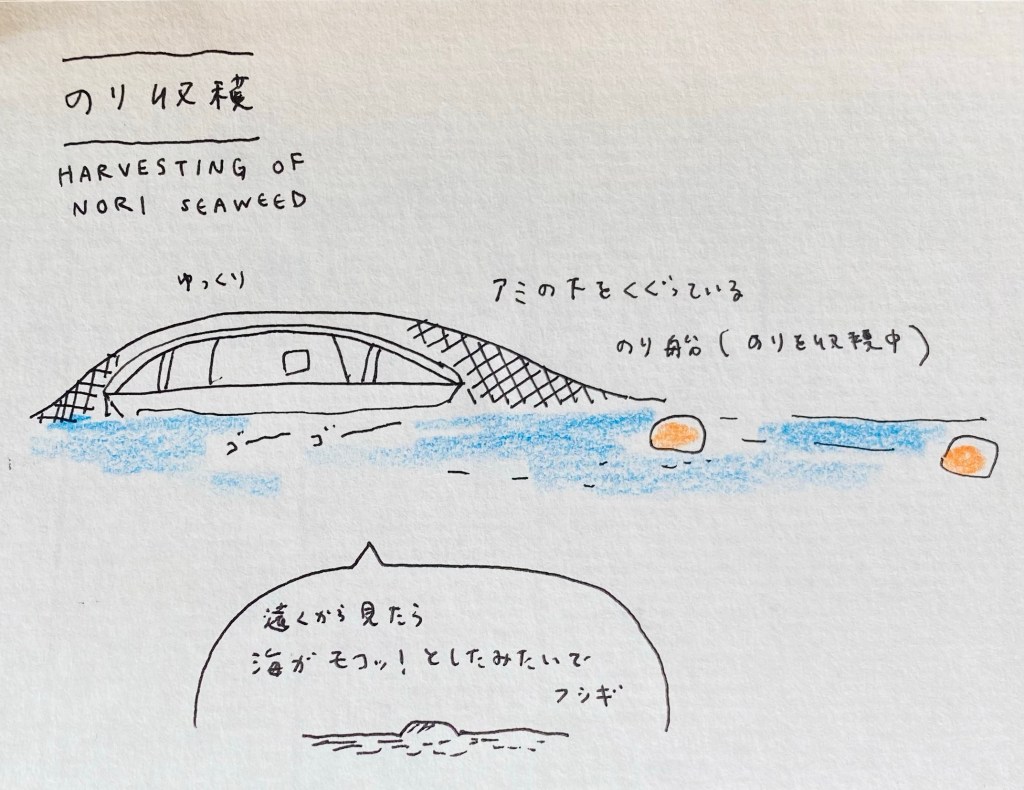 のり収穫
HARVESTING OF
NORI SEAWEED
ゆっくり
アミの下をくぐっている
のり船(のりを収穫中)
ゴー ゴー
遠くから見たら
海がモコッ!としたみたいで
フシギ